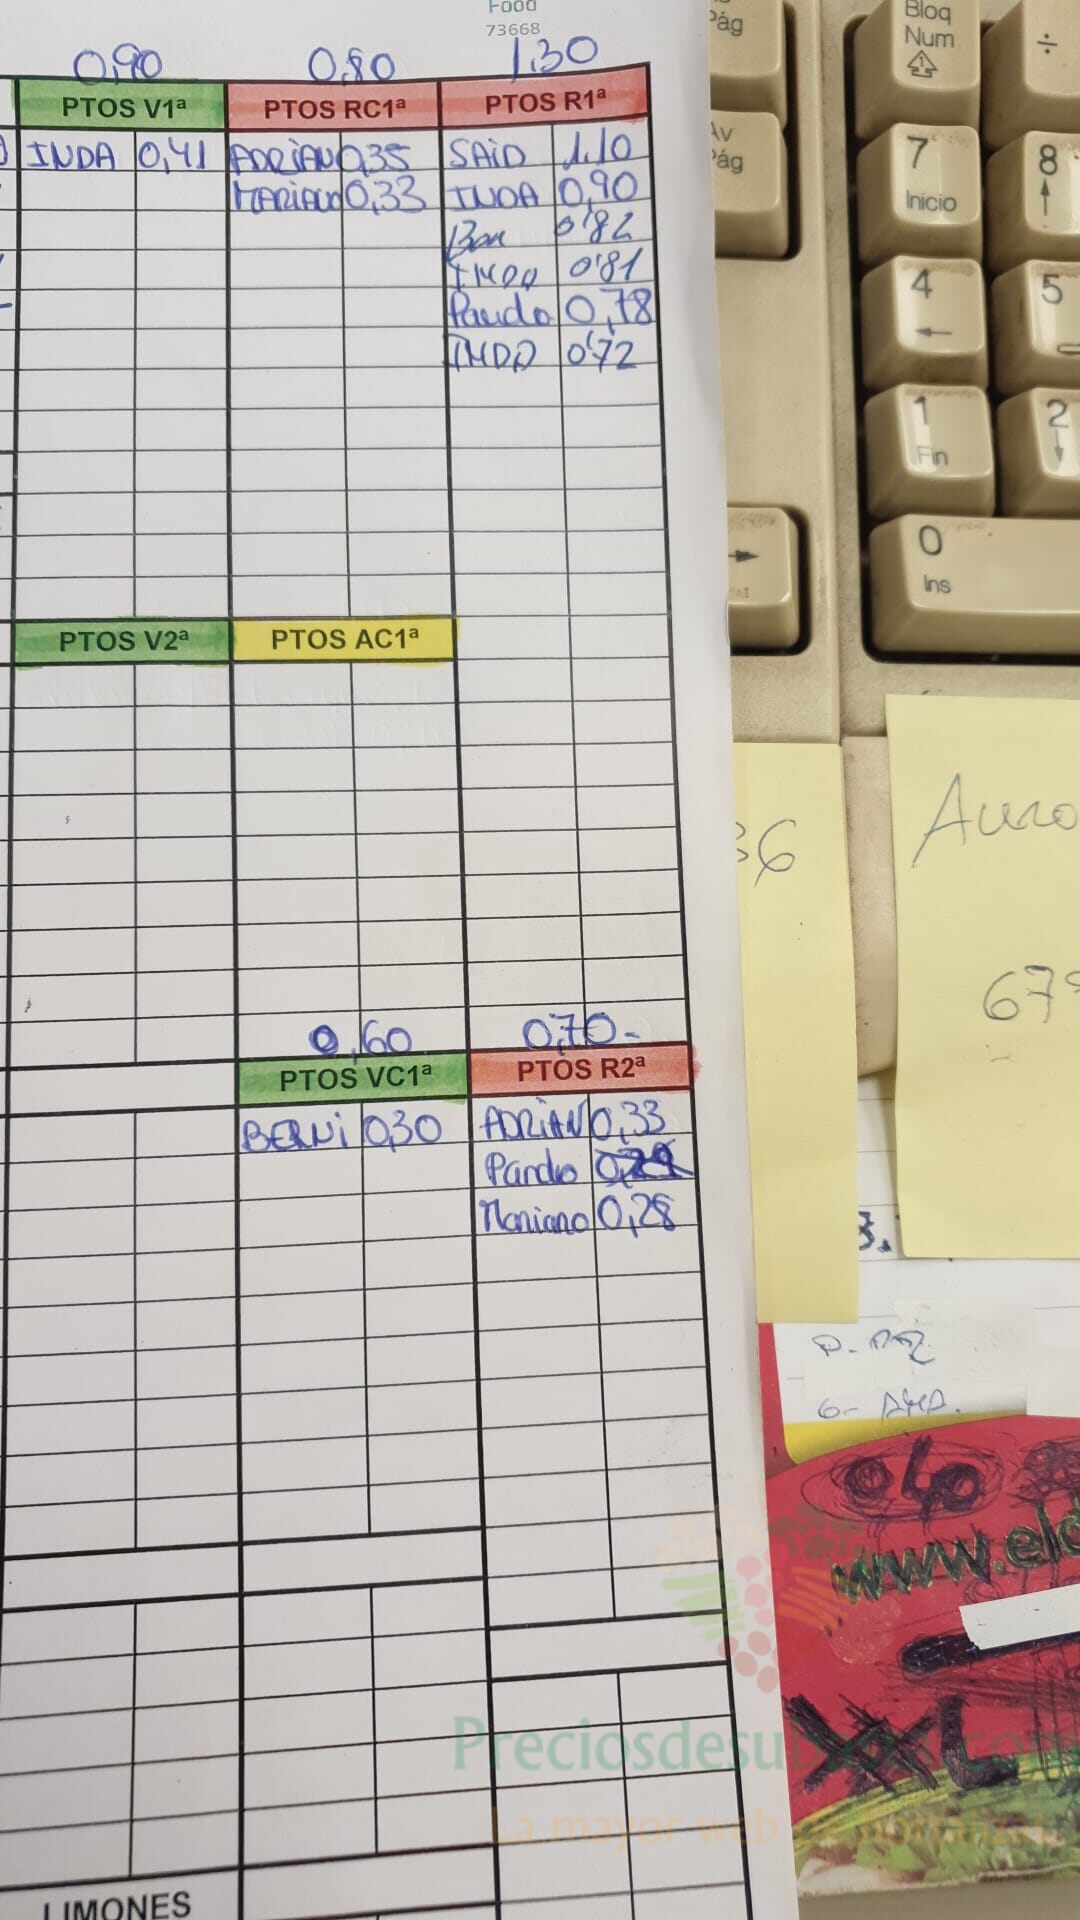 Food
73668
0,90 0,80 1,30
PTOS V1ª PTOS RC1ª PTOS R1ª
INDA 0,41 ADRIAN 0,35 SAID 1,10
MARIANO 0,33 INDA 0,90
0'82
INDA 0'81
Pando 0,78
INDA 0'72
PTOS V2ª PTOS AC1ª
0,60 0,70-
PTOS VC1ª PTOS R2ª
BERNI 0,30 ADRIAN 0,33
Pando
Mariano 0,28
LIMONES
Pág
Av
Pág
Bloq
Num
÷
7
Inicio
8
4
5
1
Fin
2
0
Ins
36
Auro
679
3.
040
www.eld
XXL
Preciosdesubasta.com
La mayor web de hortalizas